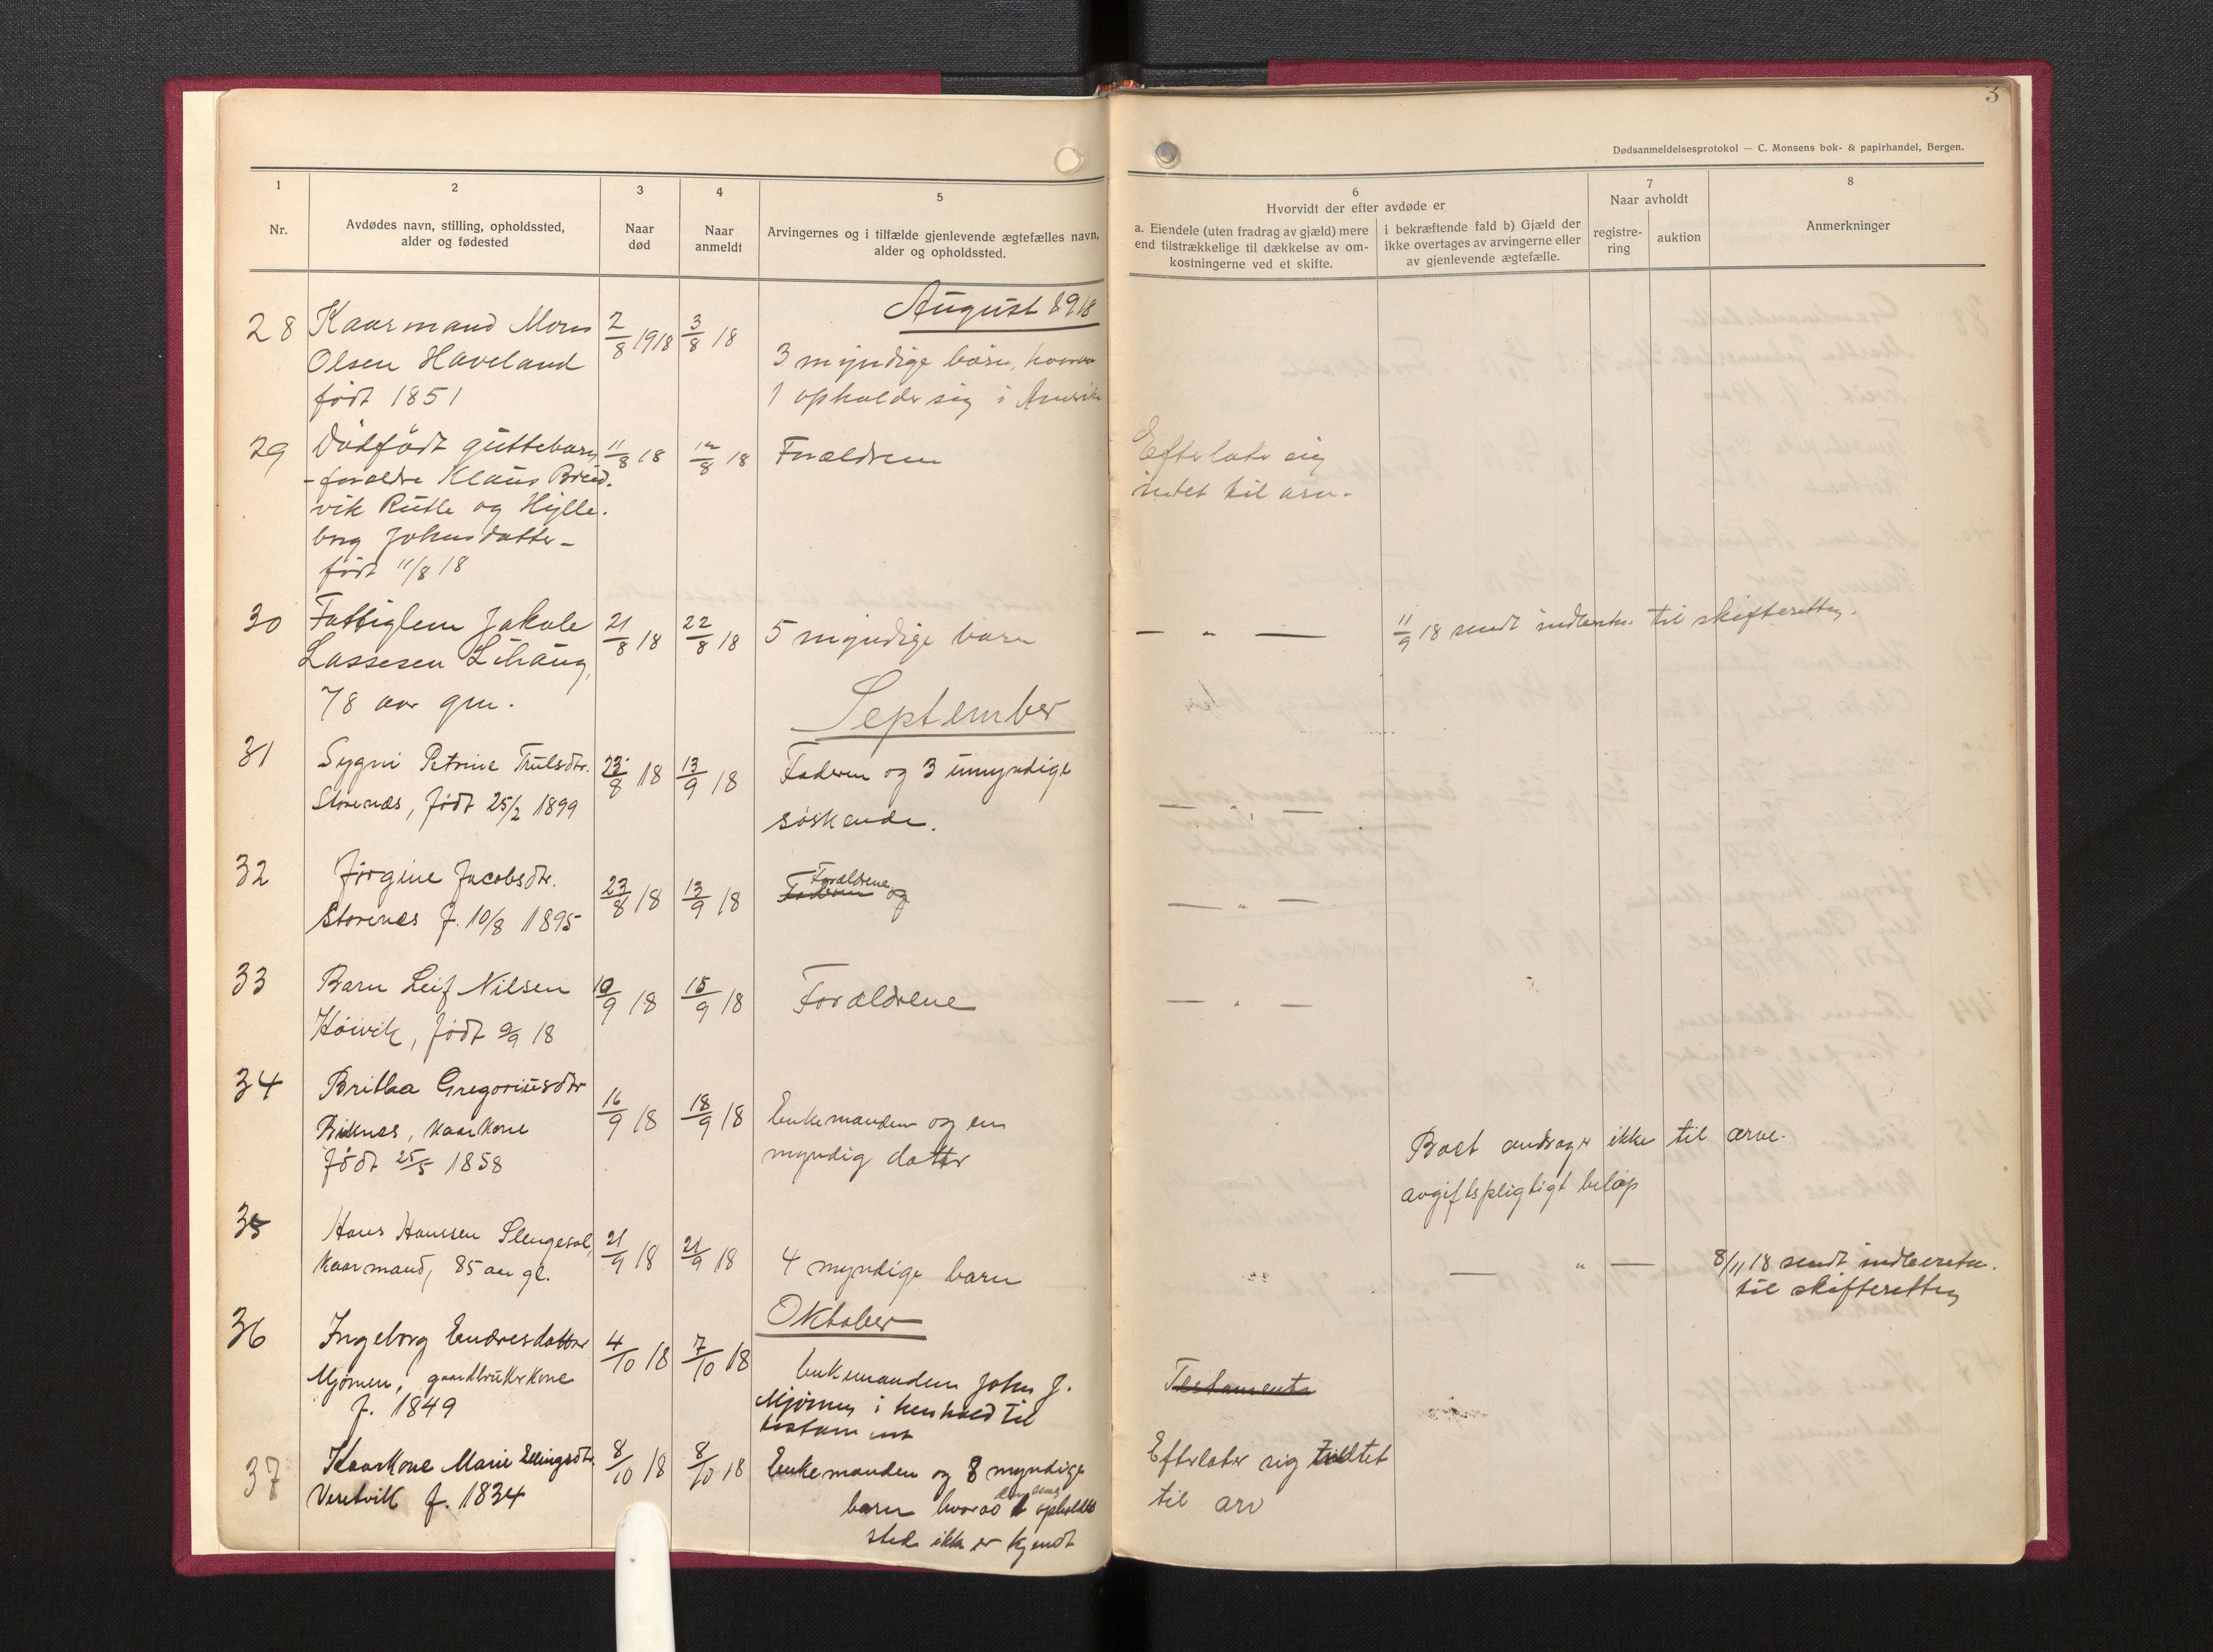 3
Dødsanmeldelsesprotokol — C. Monsens bok- & papirhandel, Bergen.
1
Nr.
2
Avdødes navn, stilling, opholdssted,
alder og fødested
3
Naar
død
4
Naar
anmeldt
5
Arvingernes og i tilfælde gjenlevende ægtefælles navn,
alder og opholdssted.
6
Hvorvidt der efter avdøde er
a. Eiendele (uten fradrag av gjæld) mere
end tilstrækkelige til dækkelse av om-
kostningerne ved et skifte.
i bekræftende fald b) Gjæld der
ikke overtages av arvingerne eller
av gjenlevende ægtefælle.
7
Naar avholdt
registre-
ring
auktion
8
Anmerkninger
August 1918
28 Kaarmand Mons 2/8 1918 3/8 18
Olsen Haveland 3 myndige børn, hvorav
født 1851 1 opholder sig i Amerika
29 Dødfødt guttebarn 11/8 18 12/8 18 Forældrene Efterlater sig
- forældre Klaus Breid- intet til arv.
vik Rutle og Hylle-
borg Johnsdatter -
født 11/8 18
30 Fattiglem Jakob 21/8 18 22/8 18 5 myndige barn — " — 11/9 18 sendt indberetn. til skifteretten.
Lassesen Lihaug,
78 aar gm.
September
31 Sygni Petrine Trulsdtr. 23/8 18 13/9 18 Faderen og 3 umyndige
Storenæs, født 25/2 1899 søskende. — " —
32 Jørgine Jacobsdtr. 23/8 18 13/9 18 Forældrene
Faderen og — " —
Storenæs f. 10/8 1895
33 Barn Leif Nilsen 10/9 18 15/9 18 Forældrene — " —
Høivik, født 9/9 18
34 Britha Gregoriusdtr 16/9 18 18/9 18 Enkemanden og en
kaarkone myndig datter
født 25/5 1858
Boet andrager ikke til arve-
avgiftspligtigt beløp
35 Hans Hanssen Slengesol, 21/9 18 21/9 18 4 myndige barn — " — 8/11 18 sendt indberetn.
Kaarmand, 85 aar gl. til skifteretten
Oktober
36 Ingeborg Endresdatter 4/10 18 7/10 18 Enkemanden John J. Testamente
Mjømen, gaardbrukerkone Mjømen i henhold til
f. 1849 testament
37 Kaarkone Marie Ellingsdtr. 8/10 18 8/10 18 Enkemanden og 8 myndige Efterlater sig intet
Veretvik f. 1834 barn hvorav opholds til arv
sted ikke er kjendt